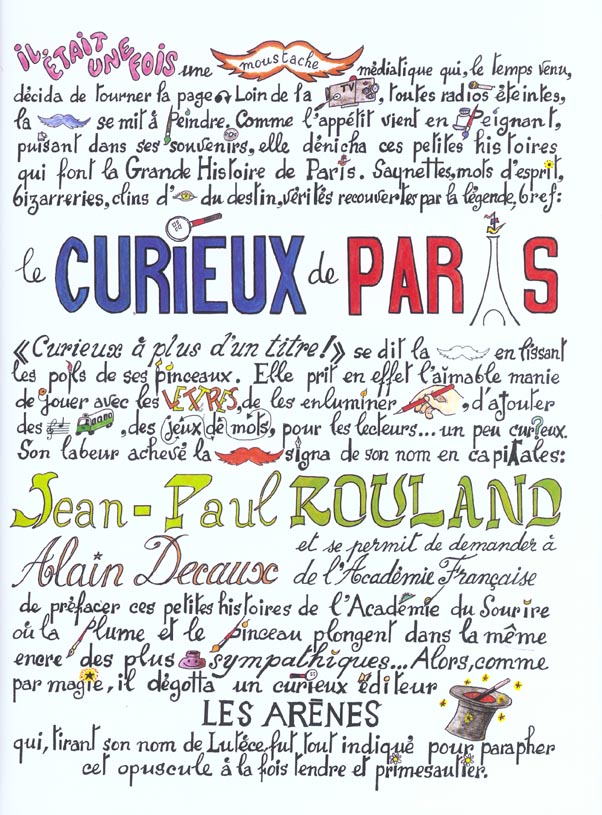 IL ÉTAIT UNE FOIS une moustache médiatique qui, le temps venu,
décida de tourner la page Loin de la TV, toutes radios éteintes,
la se mit à Peindre. Comme l'appétit vient en Peignant,
puisant dans ses souvenirs, elle dénicha ces petites histoires
qui font la Grande Histoire de Paris. Saynettes, mots d'esprit,
bizarreries, clins d' du destin, vérités recouvertes par la légende, bref:
le CURIEUX de PARIS
«Curieux à plus d'un titre!» se dit la en lissant
les poils de ses pinceaux. Elle prit en effet l'aimable manie
de jouer avec les LETTRES, de les enluminer, d'ajouter
des , des jeux de mots, pour les lecteurs... un peu curieux.
Son labeur achevé la signa de son nom en capitales:
Jean-Paul ROULAND
et se permit de demander à
Alain Decaux de l'Académie Française
de préfacer ces petites histoires de l'Académie du Sourire
où la Plume et le Pinceau plongent dans la même
encre des plus sympathiques... Alors, comme
par magie, il dégotta un curieux éditeur
LES ARÈNES
qui, tirant son nom de Lutéce, fut tout indiqué pour parapher
cet opuscule à la fois tendre et primesautier.